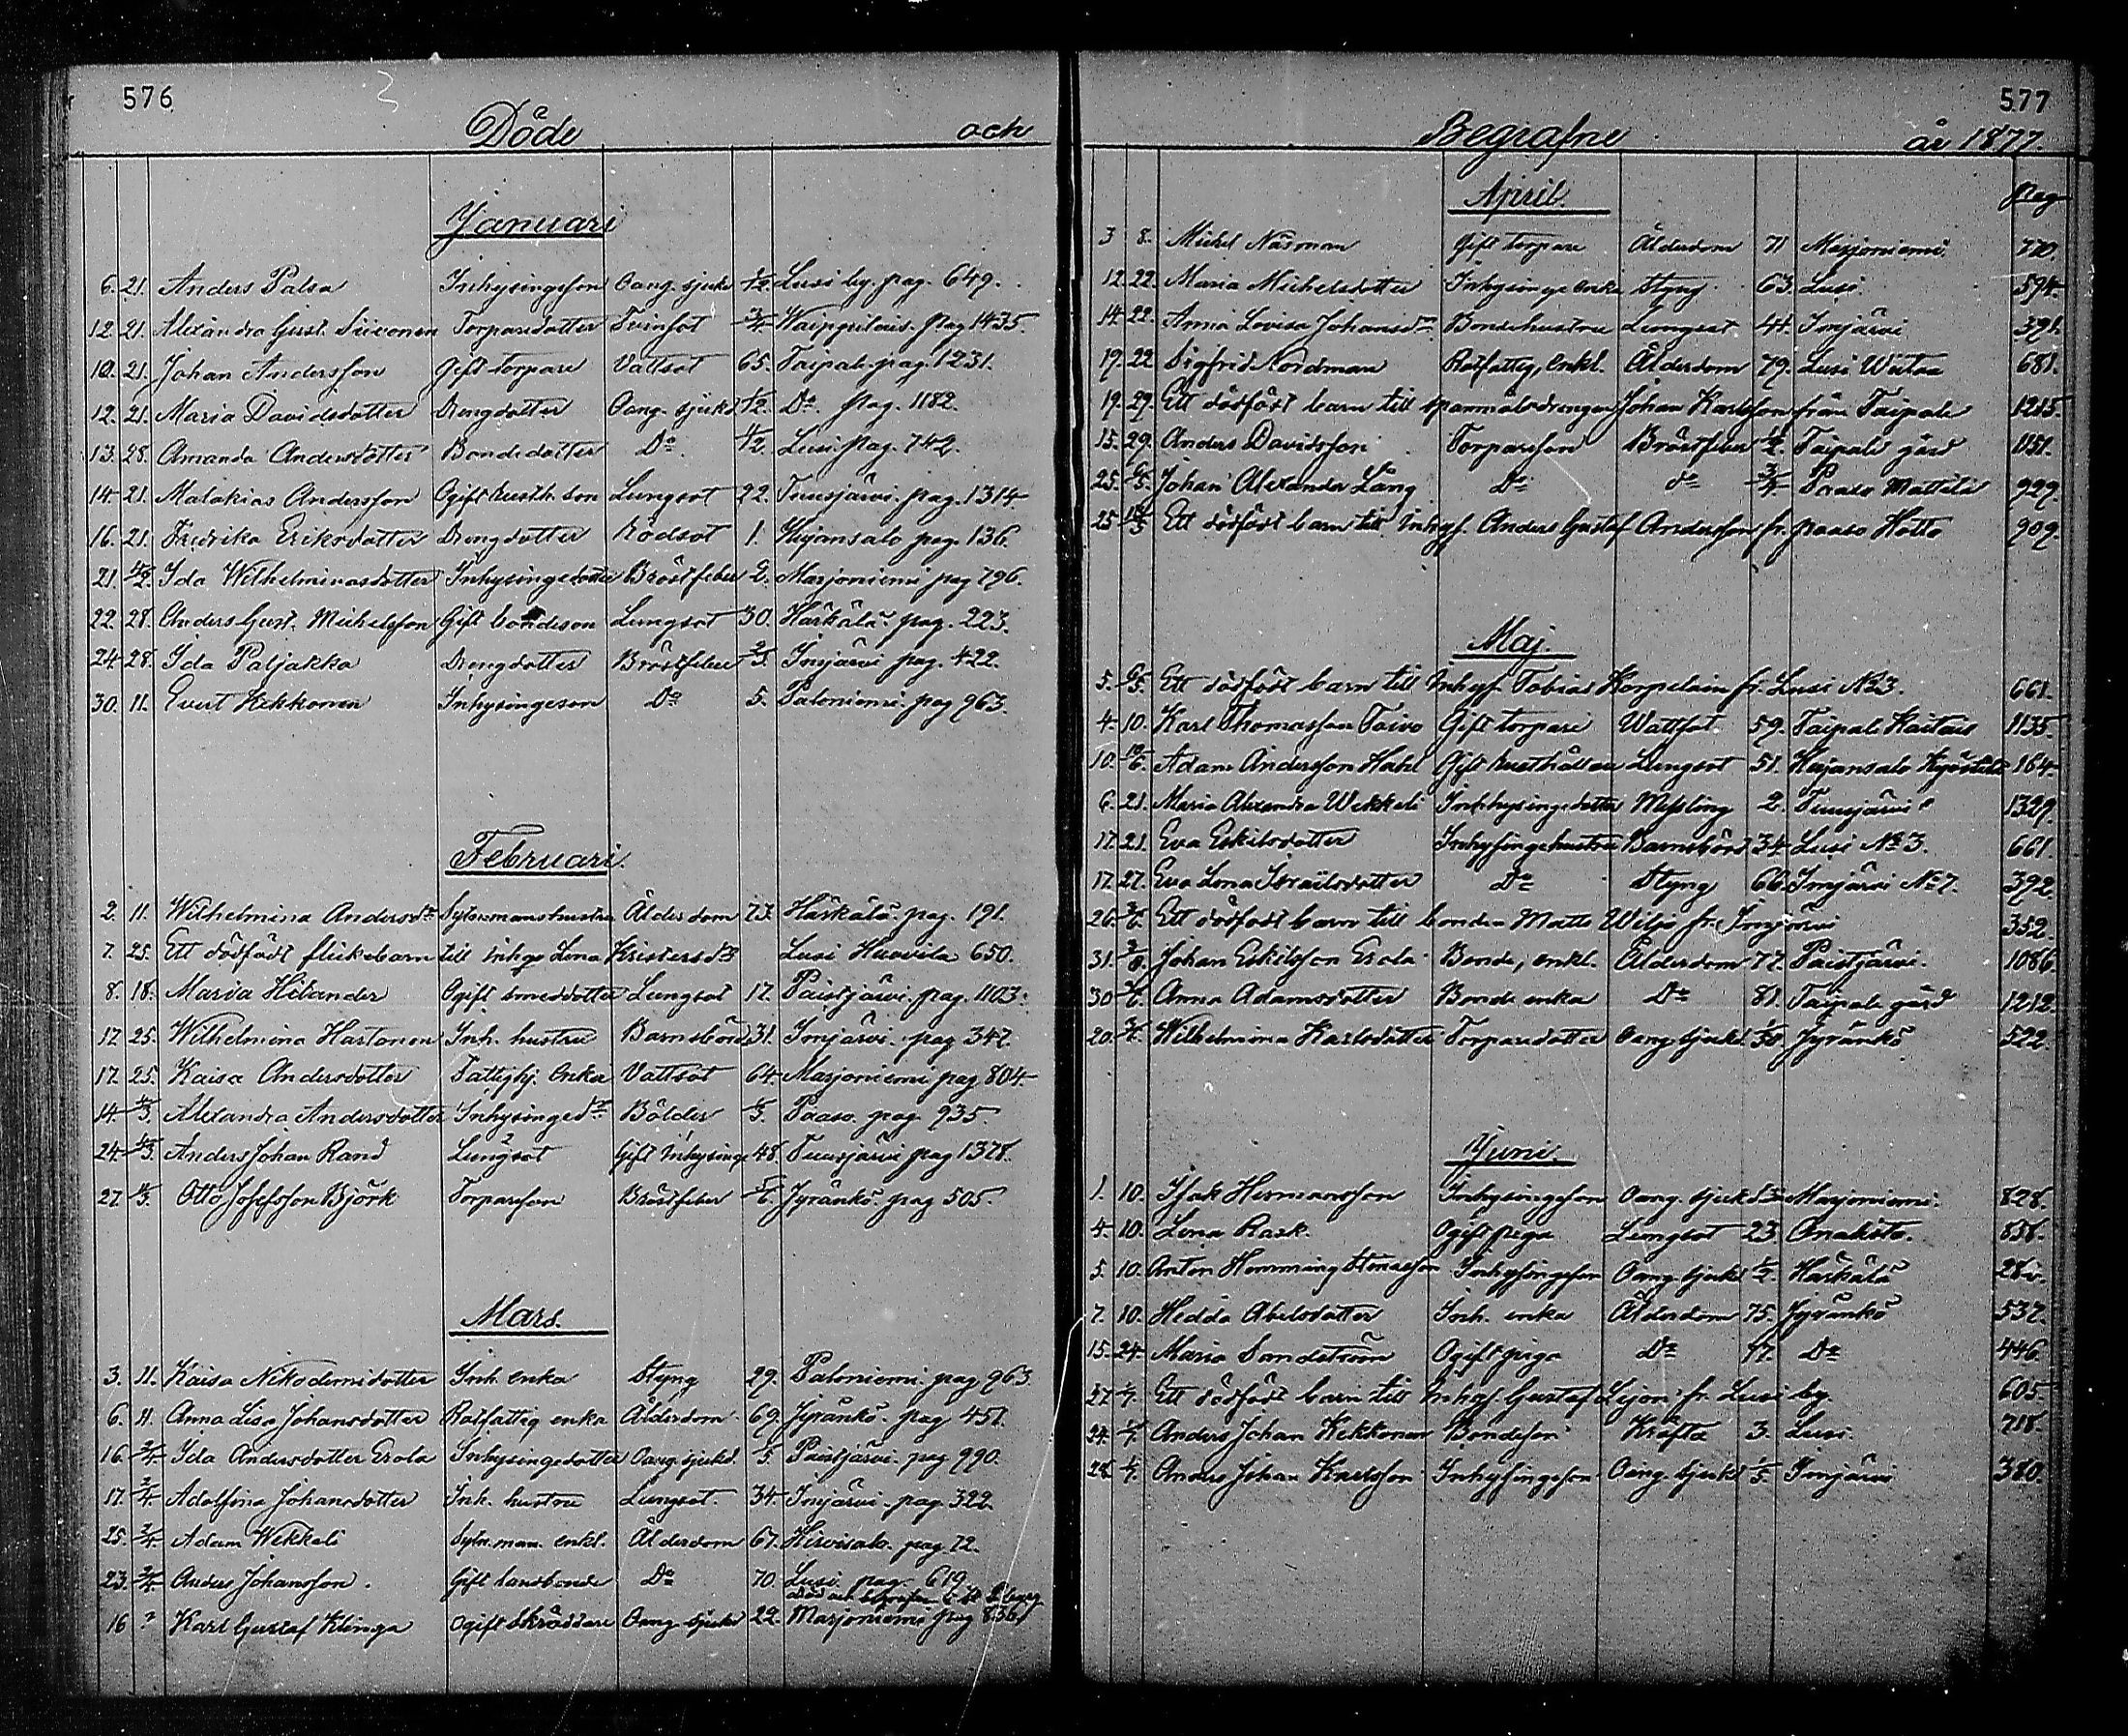 576
Döde och
Januari
6. 21. Anders Palsa Inhysingeson Oang. sjukd 1/12 Lusi by. pag. 649.
12. 21. Alexandra Gust. Siivonen Torparedotter Tvinsot 3/4 Waippilais. pag 1435.
10. 21. Johan Andersson Gift torpare Vattsot 65. Taipale pag. 1231.
12. 21. Maria Davidsdotter Drengdotter Oang. sjukd 1/12. Do. pag. 1182.
13. 28. Amanda Andersdotter Bondedotter Do. 1/2. Lusi pag. 742.
14. 21. Malakias Andersson Ogift husth. son Lungsot 22. Tuusjärvi pag. 1314
16. 21. Fredrika Eriksdotter Drengdotter Rödsot 1. Heijansalo pag. 136.
21. 4/2. Ida Wilhelminasdotter Inhysingedotter Bröstfeber 2. Marjoniemi pag 796.
22. 28. Anders Gust. Michelsson Gift bondeson Lungsot 30. Härkälä pag. 223.
24 28. Ida Paljakka Drengdotter Bröstfeber 2/3. Imjärvi pag. 422.
30. 11. Evert Kekkonen Inhysingeson Do 5. Paloniemi pag 963.
Februari.
2. 11. Wilhelmina Andersdr Sytn.manshustru Ålderdom 73. Härkälä pag. 191.
7. 25. Ett dödfödt flickebarn till inhys Lena Kristersdr Lusi Huovila 650.
8. 18. Maria Hilander Ogift smeddotter Lungsot 17. Paistjärvi pag. 1103.
17. 25. Wilhelmina Hartonen Inh. hustru Barnsbörd 31. Imjärvi pag 347.
17. 25. Kaisa Andersdotter Fattighj. enka Vattsot 64. Marjoniemi pag 804.
14. 4/3. Alexandra Andersdotter Inhysingedr Bölder 1/3. Paaso pag. 935.
24. 4/3. Anders Johan Rand Lungsot Gift inhysing 48. Tuusjärvi pag 1378.
27. 4/3. Otto Josefsson Björk Torpareson Bröstfeber 5/6. Jyränkö pag 505.
Mars.
3. 11. Kaisa Nikodemidotter Inh. enka Styng 29. Paloniemi pag 963
6. 11. Anna Lisa Johansdotter Rotfattig enka Ålderdom 69. Jyränkö pag 451.
16. 2/4. Ida Andersdotter Erola Inhysingedotter Oang. sjukd. 1/5. Paistjärvi pag 990.
17. 2/4. Adolfina Johansdotter Inh. hustru Lungsot. 34. Imjärvi pag. 322.
25. 2/4. Adam Wekkeli Sytn.man. enkl. Ålderdom 67. Hirvisalo pag 72.
23. 2/4. Anders Johansson. Gift landbonde Do 70. Lusi pag. 619
död och begrafven i St
16 ? Karl Gustaf Klinga Ogift skräddare Oang sjukd 22. Marjoniemi pag 836
577
Begrafne år 1877.
April. Pag
3 8. Michel Näsman Gift torpare Ålderdom 71 Marjoniemi 770.
12. 22. Maria Michelsdotter Inhysinge enka Styng 63. Lusi. 594.
14. 22. Anna Lovisa Johansdr Bondehustru Lungsot 44. Imjärvi 391.
19. 22 Sigfrid Nordman Rotfattig, enkl. Ålderdom 79. Lusi Wiitaa 681.
19. 29. Ett dödfödt barn till spanmålsdrengen Johan Karlsson från Taipale 1215.
15. 29. Anders Davidsson Torpareson Bröstfeber 1/2. Taipale gård 1151.
25. 6/5. Johan Alexander Lång Do do 3/4 Paaso Mattila 929.
25 10/5 Ett dödfödt barn till inhys. Anders Gustaf Andersson fr. Paaso Hotto 909.
Maj.
5. 6/5. Ett dödfödt barn till inhys. Tobias Korpelain fr. Lusi No 3. 661.
4. 10. Karl Thomasson Toivo Gift torpare Wattsot. 59. Taipale Kaitais 1135.
10. 10/6. Adam Andersson Hahl Gift husthållare Lungsot 51. Heijansalo 164.
6. 21. Maria Alexandra Wekkeli Inhysingedotter Messling 2. Tuusjärvi 1329.
17. 21. Eva Eskilsdotter Inhysingehustru Barnsbörd 34 Lusi No 3. 661.
17. 27. Eva Lena Israelsdotter Do Styng 66. Imjärvi No 7. 392.
26. 3/6. Ett dödfödt barn till bonden Matts Wiljo fr. Imjärvi 352.
31. 3/6. Johan Eskilsson Erola Bonde, enkl. Ålderdom 77. Paistjärvi. 1086.
30 3/6. Anna Adamsdotter Bonde enka Do 81. Taipale gård 1212.
20. 3/6. Wilhelmina Karlsdotter Torparedotter Oang. sjukd. Jyränkö 522.
Juni.
1. 10. Isak Hermansson Inhysingeson Oang. sjukd Marjoniemi. 828.
4. 10. Lena Rask. Ogift piga Lungsot 23 Onakisto. 858.
5. 10. Anton Hemming Inhysingeson Oang. sjukd 1/2. Härkälä
7. 10. Hedda Abelsdotter Inh. enka Ålderdom 75. Jyränkö 537.
15. 24. Maria Sandström Ogift piga Do 77. Do 446.
27. 1/7. Ett dödfödt barn till inhys. Gustaf Lejon fr. Lusi by. 605.
24. 1/7. Anders Johan Kekkonen Bondeson Kräfta 3. Lusi. 718.
28. 1/7. Anders Johan Karlsson Inhysingeson Oang. sjukd 1/5. Imjärvi 380.